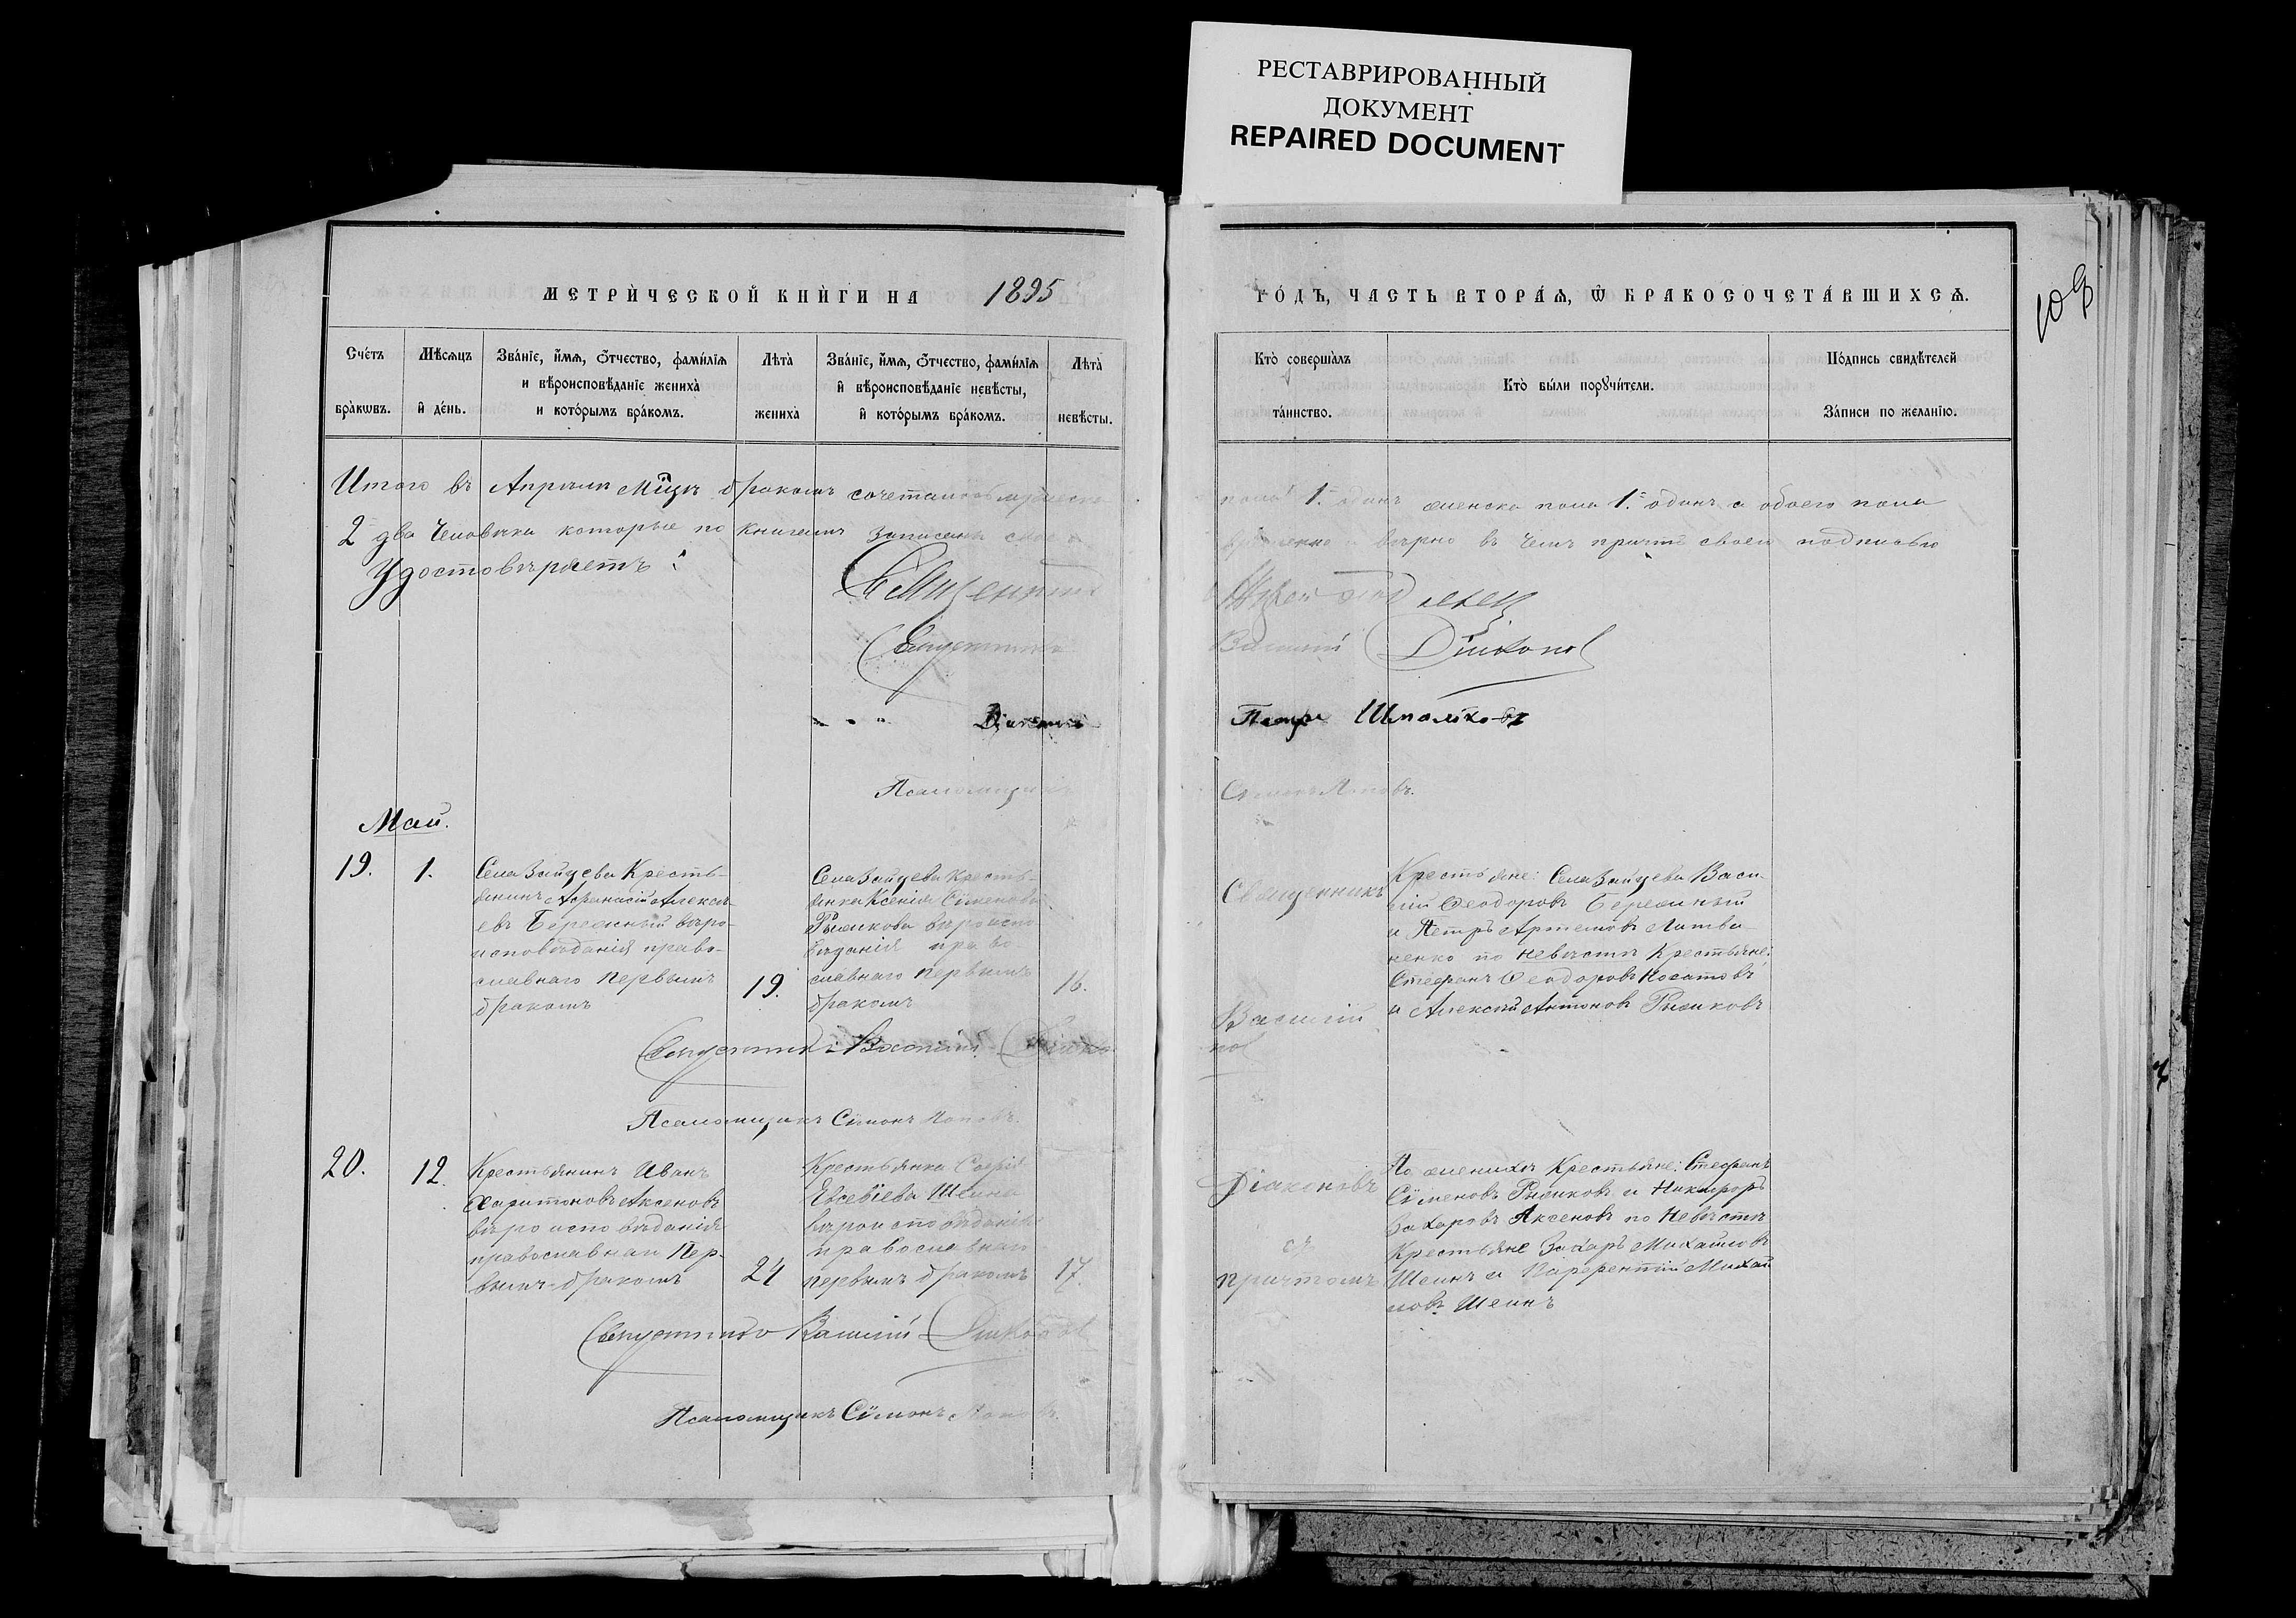 РЕСТАВРИРОВАННЫЙ
ДОКУМЕНТ
REPAIRED DOCUMENT
МЕТРИ́ЧЕСКОЙ КНИ́ГИ НА 1895
ГО́ДЪ, ЧАСТЬ ВТОРА́Ѧ, Ѿ БРАКОСОЧЕТА́ВШИХСѦ.
103
Сче́тъ
бра́кѡвъ.
Мѣ́сѧцъ
и҆ де́нь.
Зва́нїе, и҆́мѧ, ѻ҆́тчество, фами́лїѧ
и вѣроисповѣ́данїе жениха̀
и кото́рымъ бра́комъ.
Лѣта̀
жениха̀
Зва́нїе, и҆́мѧ, ѻ҆́тчество, фами́лїѧ
и҆ вѣроисповѣ́данїе невѣ́сты,
и҆ кото́рымъ бра́комъ.
Лѣта̀
невѣ́сты.
Кто̀ соверша́лъ
та́инство.
Кто̀ бы́ли порꙋчи́тели.
По́дпись свидѣ́телей
За́писи по жела́нїю.
Итого въ Апрѣлѣ Мцѣ бракомъ сочетались мужеска
пола 1. одинъ женска пола 1. одинъ а обоего пола
2 два Человѣка которые по книгамъ записаны
вѣрно въ чемъ причтъ своею подписью
Удостовѣряетъ:
Священникъ
Священникъ Василій Дьяконов
Діаконъ Петръ
Псаломщикъ Сѵмонъ Поповъ.
Май.
19.
1.
Села Зайцева Кресть-
янинъ Афанасій Алексѣ-
евъ Бережный вѣро-
исповѣданія право-
славнаго первымъ
бракомъ
19.
Села Зайцева Кресть-
янка Ксенія Сѵменова
Рыжкова вѣроиспо
вѣданія право-
славнаго первымъ
бракомъ
16.
Священникъ
Василій
Крестьяне: Села Зайцева Васи-
лій Ѳеодоровъ Бережный
и Петръ Артемовъ Литви-
ненко по невѣстѣ Крестьяне:
Стефанъ Ѳеодоровъ Косатовъ
и Алексій Антоновъ Рыжковъ
Священникъ Василій Дьяко-
нов
Псаломщикъ Сѵмонъ Поповъ.
20.
12.
Крестьянинъ Иванъ
Харитоновъ Аксеновъ
вѣроисповѣданія
православнаго Пер-
вымъ бракомъ
24
Крестьянка Софія
Евсевіева Шеина
вѣроисповѣданія
православнаго
первымъ бракомъ
17.
Діаконовъ
съ
причтомъ
По женихѣ Крестьяне: Стефанъ
Сѵменовъ Рыжковъ и Никифоръ
Захаровъ Аксеновъ по Невѣстѣ
Крестьяне Захаръ Михайловъ
Шеинъ и Парфентій Михай
ловъ Шеинъ
Священникъ Василій Дьяконов
Псаломщикъ Сѵмонъ Поповъ.